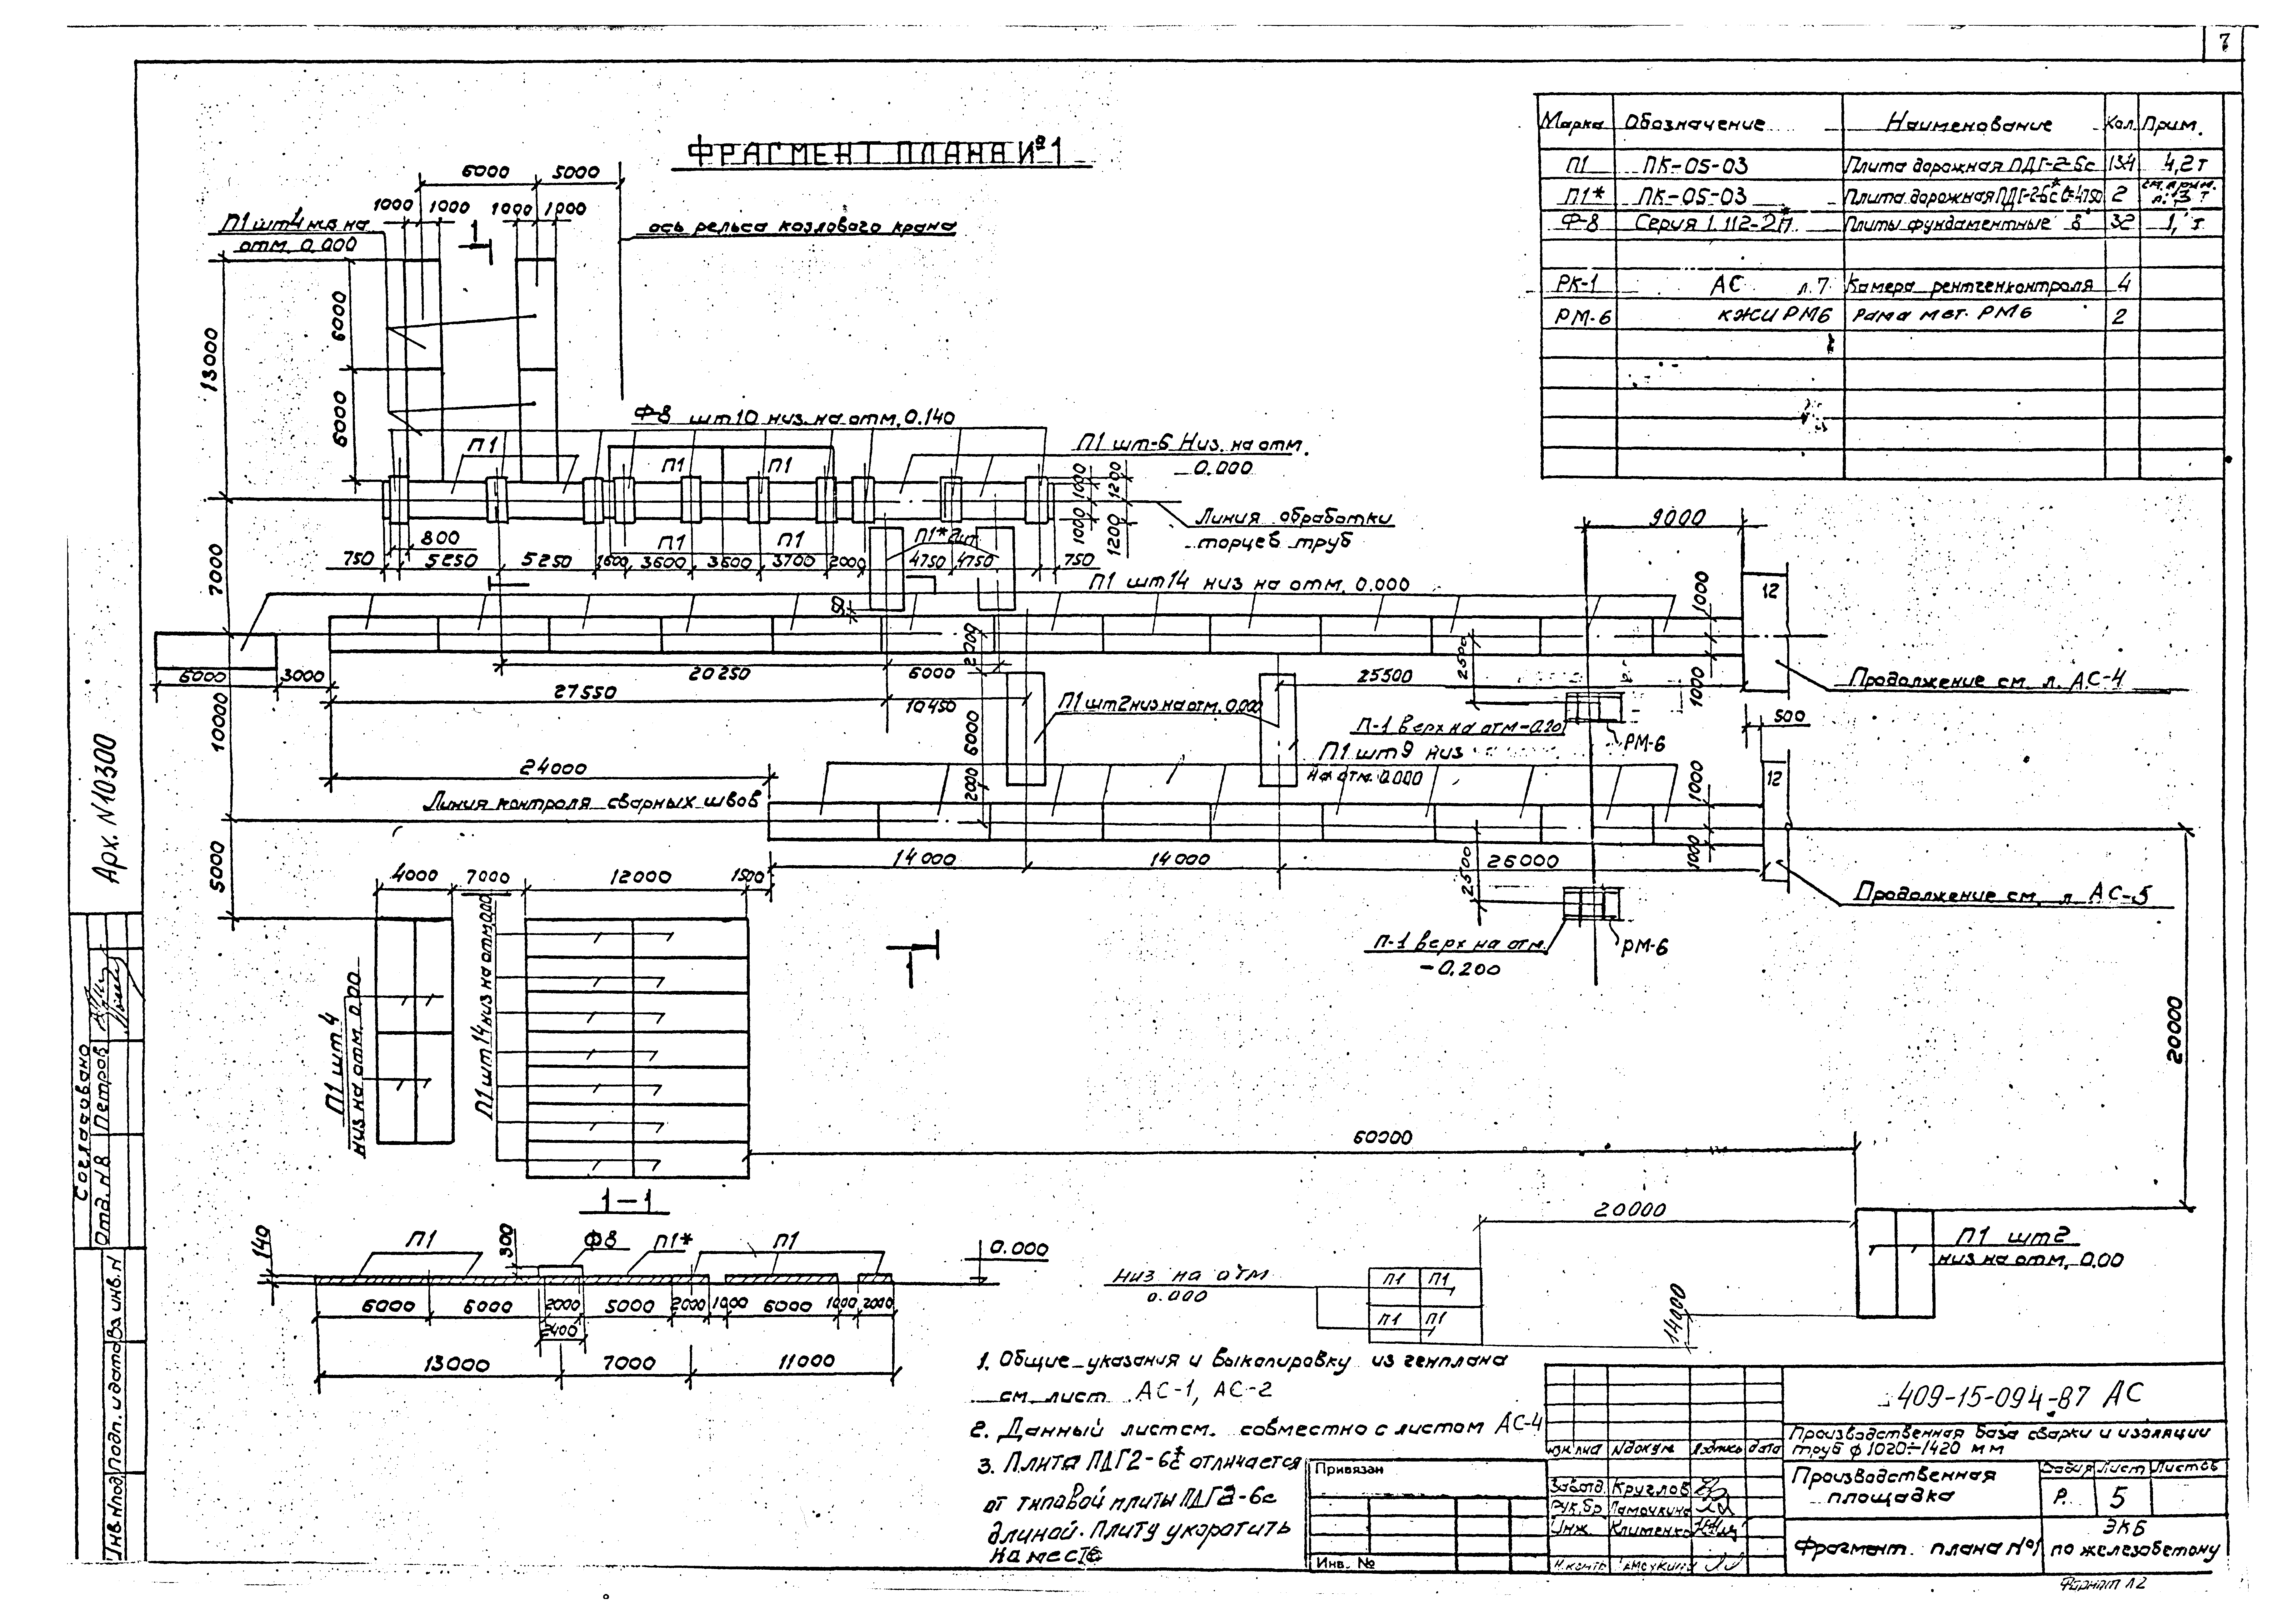 7
ФРАГМЕНТ ПЛАНА №1
Марка Обозначение Наименование Кол. Прим.
П1 ПК-05-03 Плита дорожная ПДГ-2-6с 134 4,2т
П1* ПК-05-03 Плита дорожная 2 см. прим. п. 3
Ф-8 Серия 1.112-2 Плиты фундаментные 8 32
РК-1 АС л.7 Камера рентгенконтроля 4
РМ-6 КЖИ РМ6 Рама мет. РМ6 2
6000 5000
1000 1000 1000 1000
П1 шт4 низ на
отм. 0.000
1
ось рельса козлового крана
13000
6000
6000
Ф-8 шт10 низ. на отм. 0.140
П1 шт-6 Низ. на отм.
0.000
П1 П1 П1
1000 1200
1000 1200
Линия обработки
торцев труб
П1 П1
П1* 2шт.
800
750 5250 5250 1600 3600 3600 3700 2000 4750 4750 750
9000
7000
П1 шт14 низ на отм. 0.000
12
1000
1000
50
6000 3000
20250 6000
27550
10450
2700
25500
2500
Продолжение см. л. АС-4
500
10000
П1 шт2 низ на отм. 0.000
6000
2000
П-1 верх на отм-0.20
РМ-6
П1 шт9 низ
на отм. 0.000
24000
Линия контроля сварных швов
12
1000
1000
14000 14000 26000
2500
5000
4000 7000 12000 1500
Продолжение см. л. АС-5
П-1 верх на отм.
-0.200
РМ-6
1
П1 шт 4
низ на отм. 0.00
П1 шт 14 низ на отм 0.00
20000
60000
1-1
140
П1 300 Ф8 П1* П1
0.000
6000 6000 2000 5000 2000 1000 6000 1000 2000
2400
13000 7000 11000
20000
Низ на отм
0.000
П1 П1
П1 П1
14000
П1 шт2
низ на отм. 0.00
1. Общие указания и выкопировку из генплана
см. лист АС-1, АС-2
2. Данный лист см. совместно с листом АС-4
3. Плита ПДГ2-6с* отличается
от типовой плиты ПДГ2-6с
длиной. Плиту укоротить
на месте
Привязан
Инв. №
409-15-094-87 АС
Производственная база сварки и изоляции
труб ф 1020÷1420 мм
№докум. Подпись дата
Зав.отд. Круглов
Рук.бр. Памочкина
Инж. Клименко
Н.контр.
Производственная
площадка
Стадия Лист Листов
Р. 5
Фрагмент плана №1
ЭКБ
по железобетону
Формат А2
Арх. №10300
Согласовано
Отд. НВ Петров
Инв. №под Подп. и дата Вз инв. №